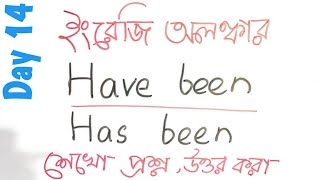 Day 14
ইংরেজি অলংকার
Have been
Has been
শেখো প্রশ্ন, উত্তর করা